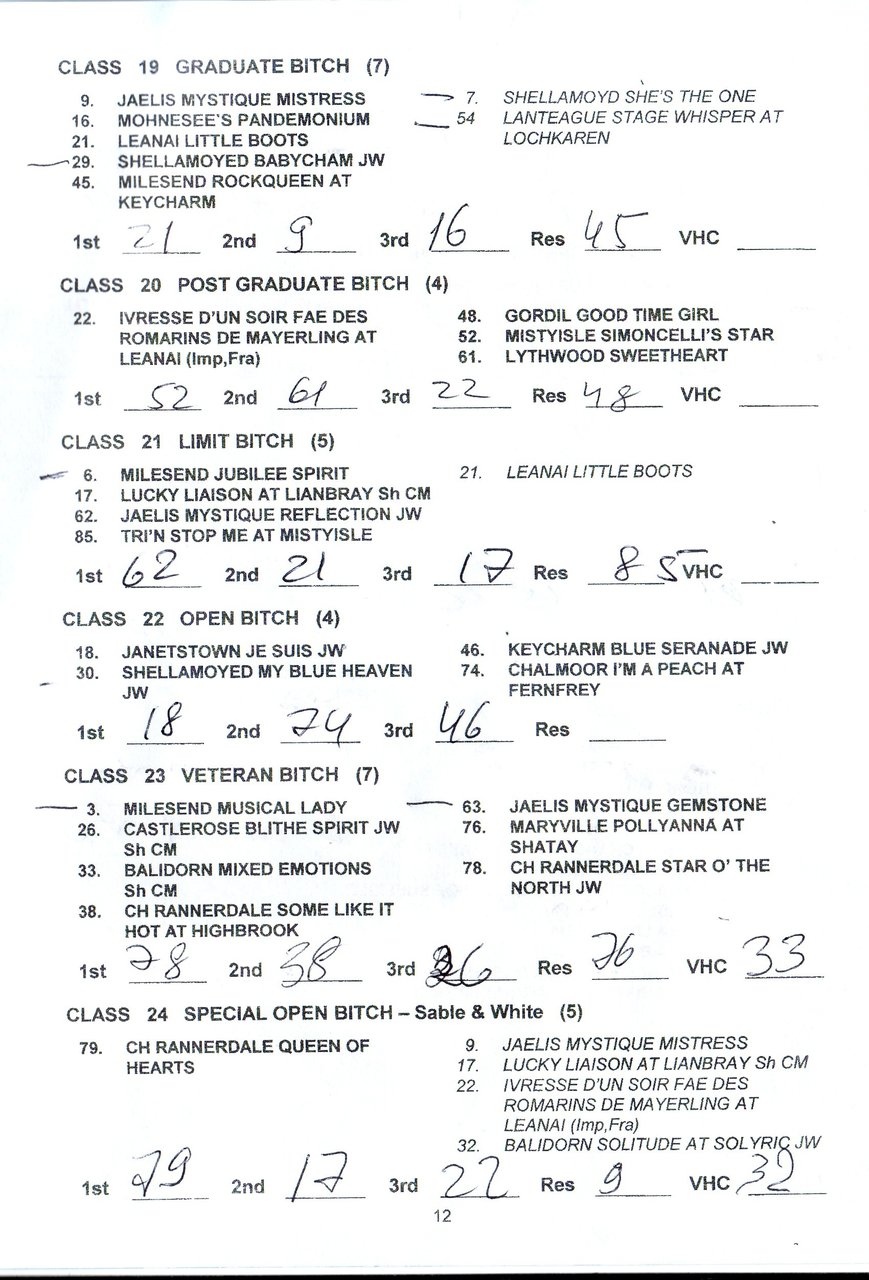 CLASS 19 GRADUATE BITCH (7)
9. JAELIS MYSTIQUE MISTRESS
16. MOHNESEE'S PANDEMONIUM
21. LEANAI LITTLE BOOTS
29. SHELLAMOYED BABYCHAM JW
45. MILESEND ROCKQUEEN AT
KEYCHARM
7. SHELLAMOYD SHE'S THE ONE
54 LANTEAGUE STAGE WHISPER AT
LOCHKAREN
1st 21 2nd 9 3rd 16 Res 45 VHC
CLASS 20 POST GRADUATE BITCH (4)
22. IVRESSE D'UN SOIR FAE DES
ROMARINS DE MAYERLING AT
LEANAI (Imp,Fra)
48. GORDIL GOOD TIME GIRL
52. MISTYISLE SIMONCELLI'S STAR
61. LYTHWOOD SWEETHEART
1st 52 2nd 61 3rd 22 Res 48 VHC
CLASS 21 LIMIT BITCH (5)
6. MILESEND JUBILEE SPIRIT
17. LUCKY LIAISON AT LIANBRAY Sh CM
62. JAELIS MYSTIQUE REFLECTION JW
85. TRI'N STOP ME AT MISTYISLE
21. LEANAI LITTLE BOOTS
1st 62 2nd 21 3rd 17 Res 85 VHC
CLASS 22 OPEN BITCH (4)
18. JANETSTOWN JE SUIS JW
30. SHELLAMOYED MY BLUE HEAVEN
JW
46. KEYCHARM BLUE SERANADE JW
74. CHALMOOR I'M A PEACH AT
FERNFREY
1st 18 2nd 74 3rd 46 Res
CLASS 23 VETERAN BITCH (7)
3. MILESEND MUSICAL LADY
26. CASTLEROSE BLITHE SPIRIT JW
Sh CM
33. BALIDORN MIXED EMOTIONS
Sh CM
38. CH RANNERDALE SOME LIKE IT
HOT AT HIGHBROOK
63. JAELIS MYSTIQUE GEMSTONE
76. MARYVILLE POLLYANNA AT
SHATAY
78. CH RANNERDALE STAR O' THE
NORTH JW
1st 78 2nd 38 3rd 26 Res 76 VHC 33
CLASS 24 SPECIAL OPEN BITCH – Sable & White (5)
79. CH RANNERDALE QUEEN OF
HEARTS
9. JAELIS MYSTIQUE MISTRESS
17. LUCKY LIAISON AT LIANBRAY Sh CM
22. IVRESSE D'UN SOIR FAE DES
ROMARINS DE MAYERLING AT
LEANAI (Imp,Fra)
32. BALIDORN SOLITUDE AT SOLYRIC JW
1st 79 2nd 17 3rd 22 Res 9 VHC 32
12